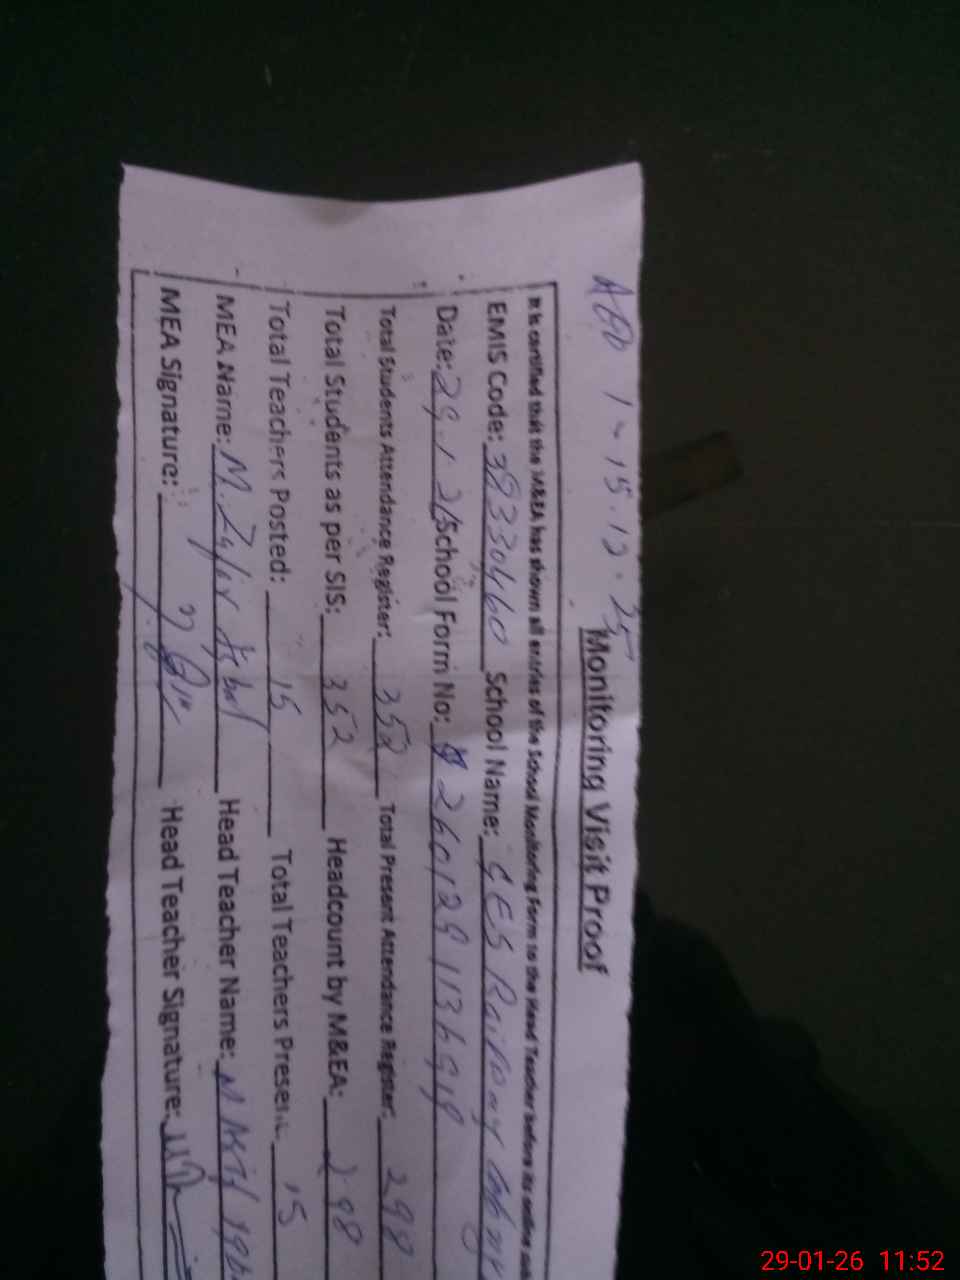 AEO 1 - 15.12.25
Monitoring Visit Proof
It is certified that the M&EA has shown all entries of the School Monitoring Form to the Head Teacher before its online
EMIS Code: 38330460 School Name: GES Railway
Date: 29.1.26 School Form No: 260129113699
Total Students Attendance Register: 352 Total Present Attendance Register: 298
Total Students as per SIS: 352 Headcount by M&EA: 298
Total Teachers Posted: 15 Total Teachers Present: 15
MEA Name: M. Zafar Iqbal Head Teacher Name:
MEA Signature: Head Teacher Signature:
29-01-26 11:52